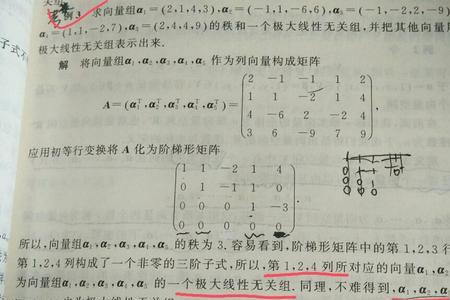 例 求向量组α₁=(2,1,4,3),α₂=(-1,1,-6,6),α₃=(-1,-2,2,-9)
α₄=(1,1,-2,7),α₅=(2,4,4,9)的秩和一个极大线性无关组,并把其他向量用
极大线性无关组表示出来.
解 将向量组α₁,α₂,α₃,α₄,α₅作为列向量构成矩阵
A=(α₁ᵀ,α₂ᵀ,α₃ᵀ,α₄ᵀ,α₅ᵀ)=
2 -1 -1 1 2
1 1 -2 1 4
4 -6 2 -2 4
3 6 -9 7 9
应用初等行变换将A化为阶梯形矩阵
1 1 -2 1 4
0 1 -1 1 0
0 0 0 1 -3
0 0 0 0 0
所以,向量组α₁,α₂,α₃,α₄,α₅的秩为3.容易看到,阶梯形矩阵中的第1,2,3行
第1,2,4列构成了一个非零的三阶子式,所以,第1,2,4列所对应的向量α₁,
为向量组α₁,α₂,α₃,α₄,α₅的一个极大线性无关组.同理,不难得到,α₁,α₂